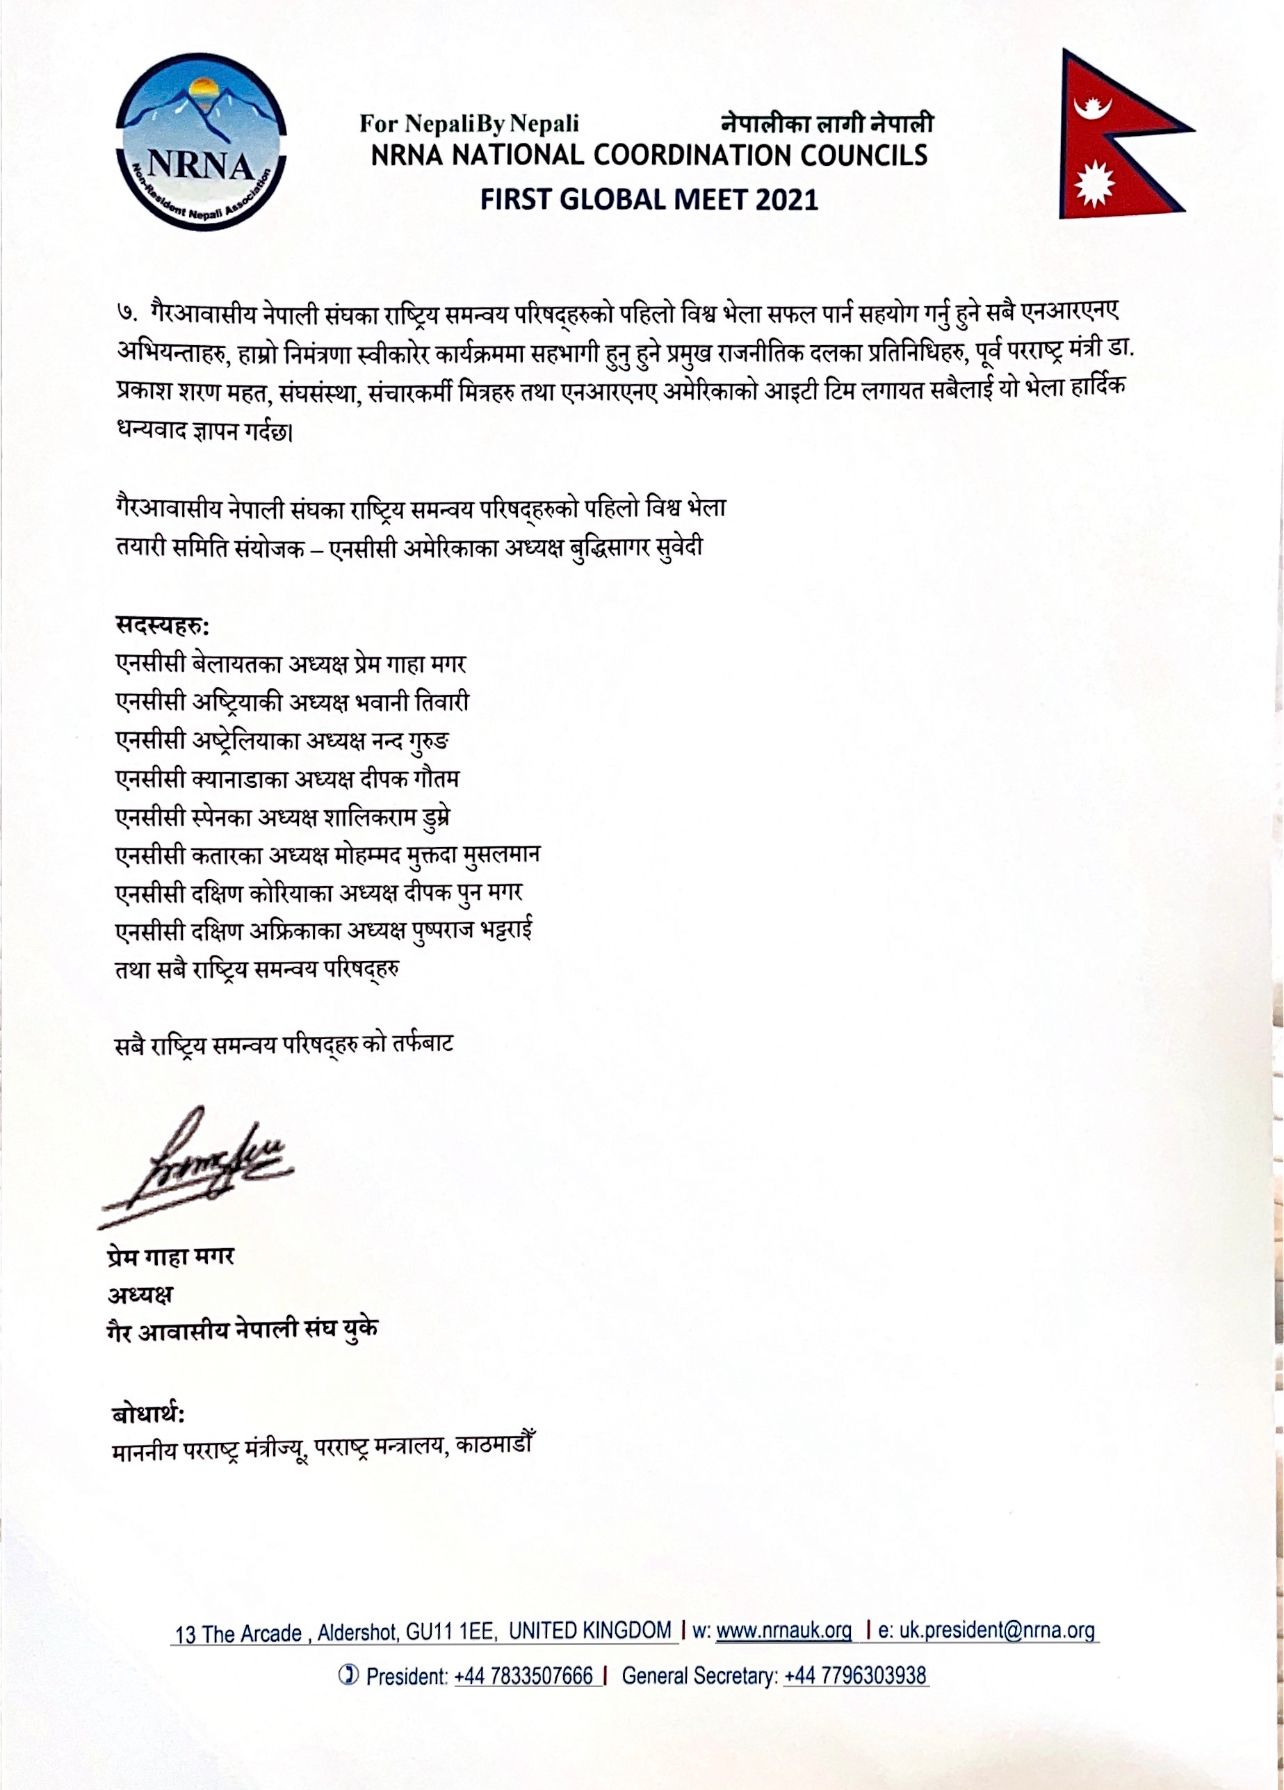 NRNA
Non-Resident Nepali Association
For NepaliBy Nepali नेपालीका लागी नेपाली
NRNA NATIONAL COORDINATION COUNCILS
FIRST GLOBAL MEET 2021
७. गैरआवासीय नेपाली संघका राष्ट्रिय समन्वय परिषद्हरुको पहिलो विश्व भेला सफल पार्न सहयोग गर्नु हुने सबै एनआरएनए
अभियन्ताहरु, हाम्रो निमंत्रणा स्वीकारेर कार्यक्रममा सहभागी हुनु हुने प्रमुख राजनीतिक दलका प्रतिनिधिहरु, पूर्व परराष्ट्र मंत्री डा.
प्रकाश शरण महत, संघसंस्था, संचारकर्मी मित्रहरु तथा एनआरएनए अमेरिकाको आइटी टिम लगायत सबैलाई यो भेला हार्दिक
धन्यवाद ज्ञापन गर्दछ।
गैरआवासीय नेपाली संघका राष्ट्रिय समन्वय परिषद्हरुको पहिलो विश्व भेला
तयारी समिति संयोजक – एनसीसी अमेरिकाका अध्यक्ष बुद्धिसागर सुवेदी
सदस्यहरु:
एनसीसी बेलायतका अध्यक्ष प्रेम गाहा मगर
एनसीसी अष्ट्रियाकी अध्यक्ष भवानी तिवारी
एनसीसी अष्ट्रेलियाका अध्यक्ष नन्द गुरुङ
एनसीसी क्यानाडाका अध्यक्ष दीपक गौतम
एनसीसी स्पेनका अध्यक्ष शालिकराम डुम्रे
एनसीसी कतारका अध्यक्ष मोहम्मद मुक्तदा मुसलमान
एनसीसी दक्षिण कोरियाका अध्यक्ष दीपक पुन मगर
एनसीसी दक्षिण अफ्रिकाका अध्यक्ष पुष्पराज भट्टराई
तथा सबै राष्ट्रिय समन्वय परिषद्हरु
सबै राष्ट्रिय समन्वय परिषद्हरु को तर्फबाट
प्रेम गाहा मगर
अध्यक्ष
गैर आवासीय नेपाली संघ युके
बोधार्थ:
माननीय परराष्ट्र मंत्रीज्यू, परराष्ट्र मन्त्रालय, काठमाडौँ
13 The Arcade , Aldershot, GU11 1EE, UNITED KINGDOM | w: www.nrnauk.org | e: uk.president@nrna.org
President: +44 7833507666 | General Secretary: +44 7796303938